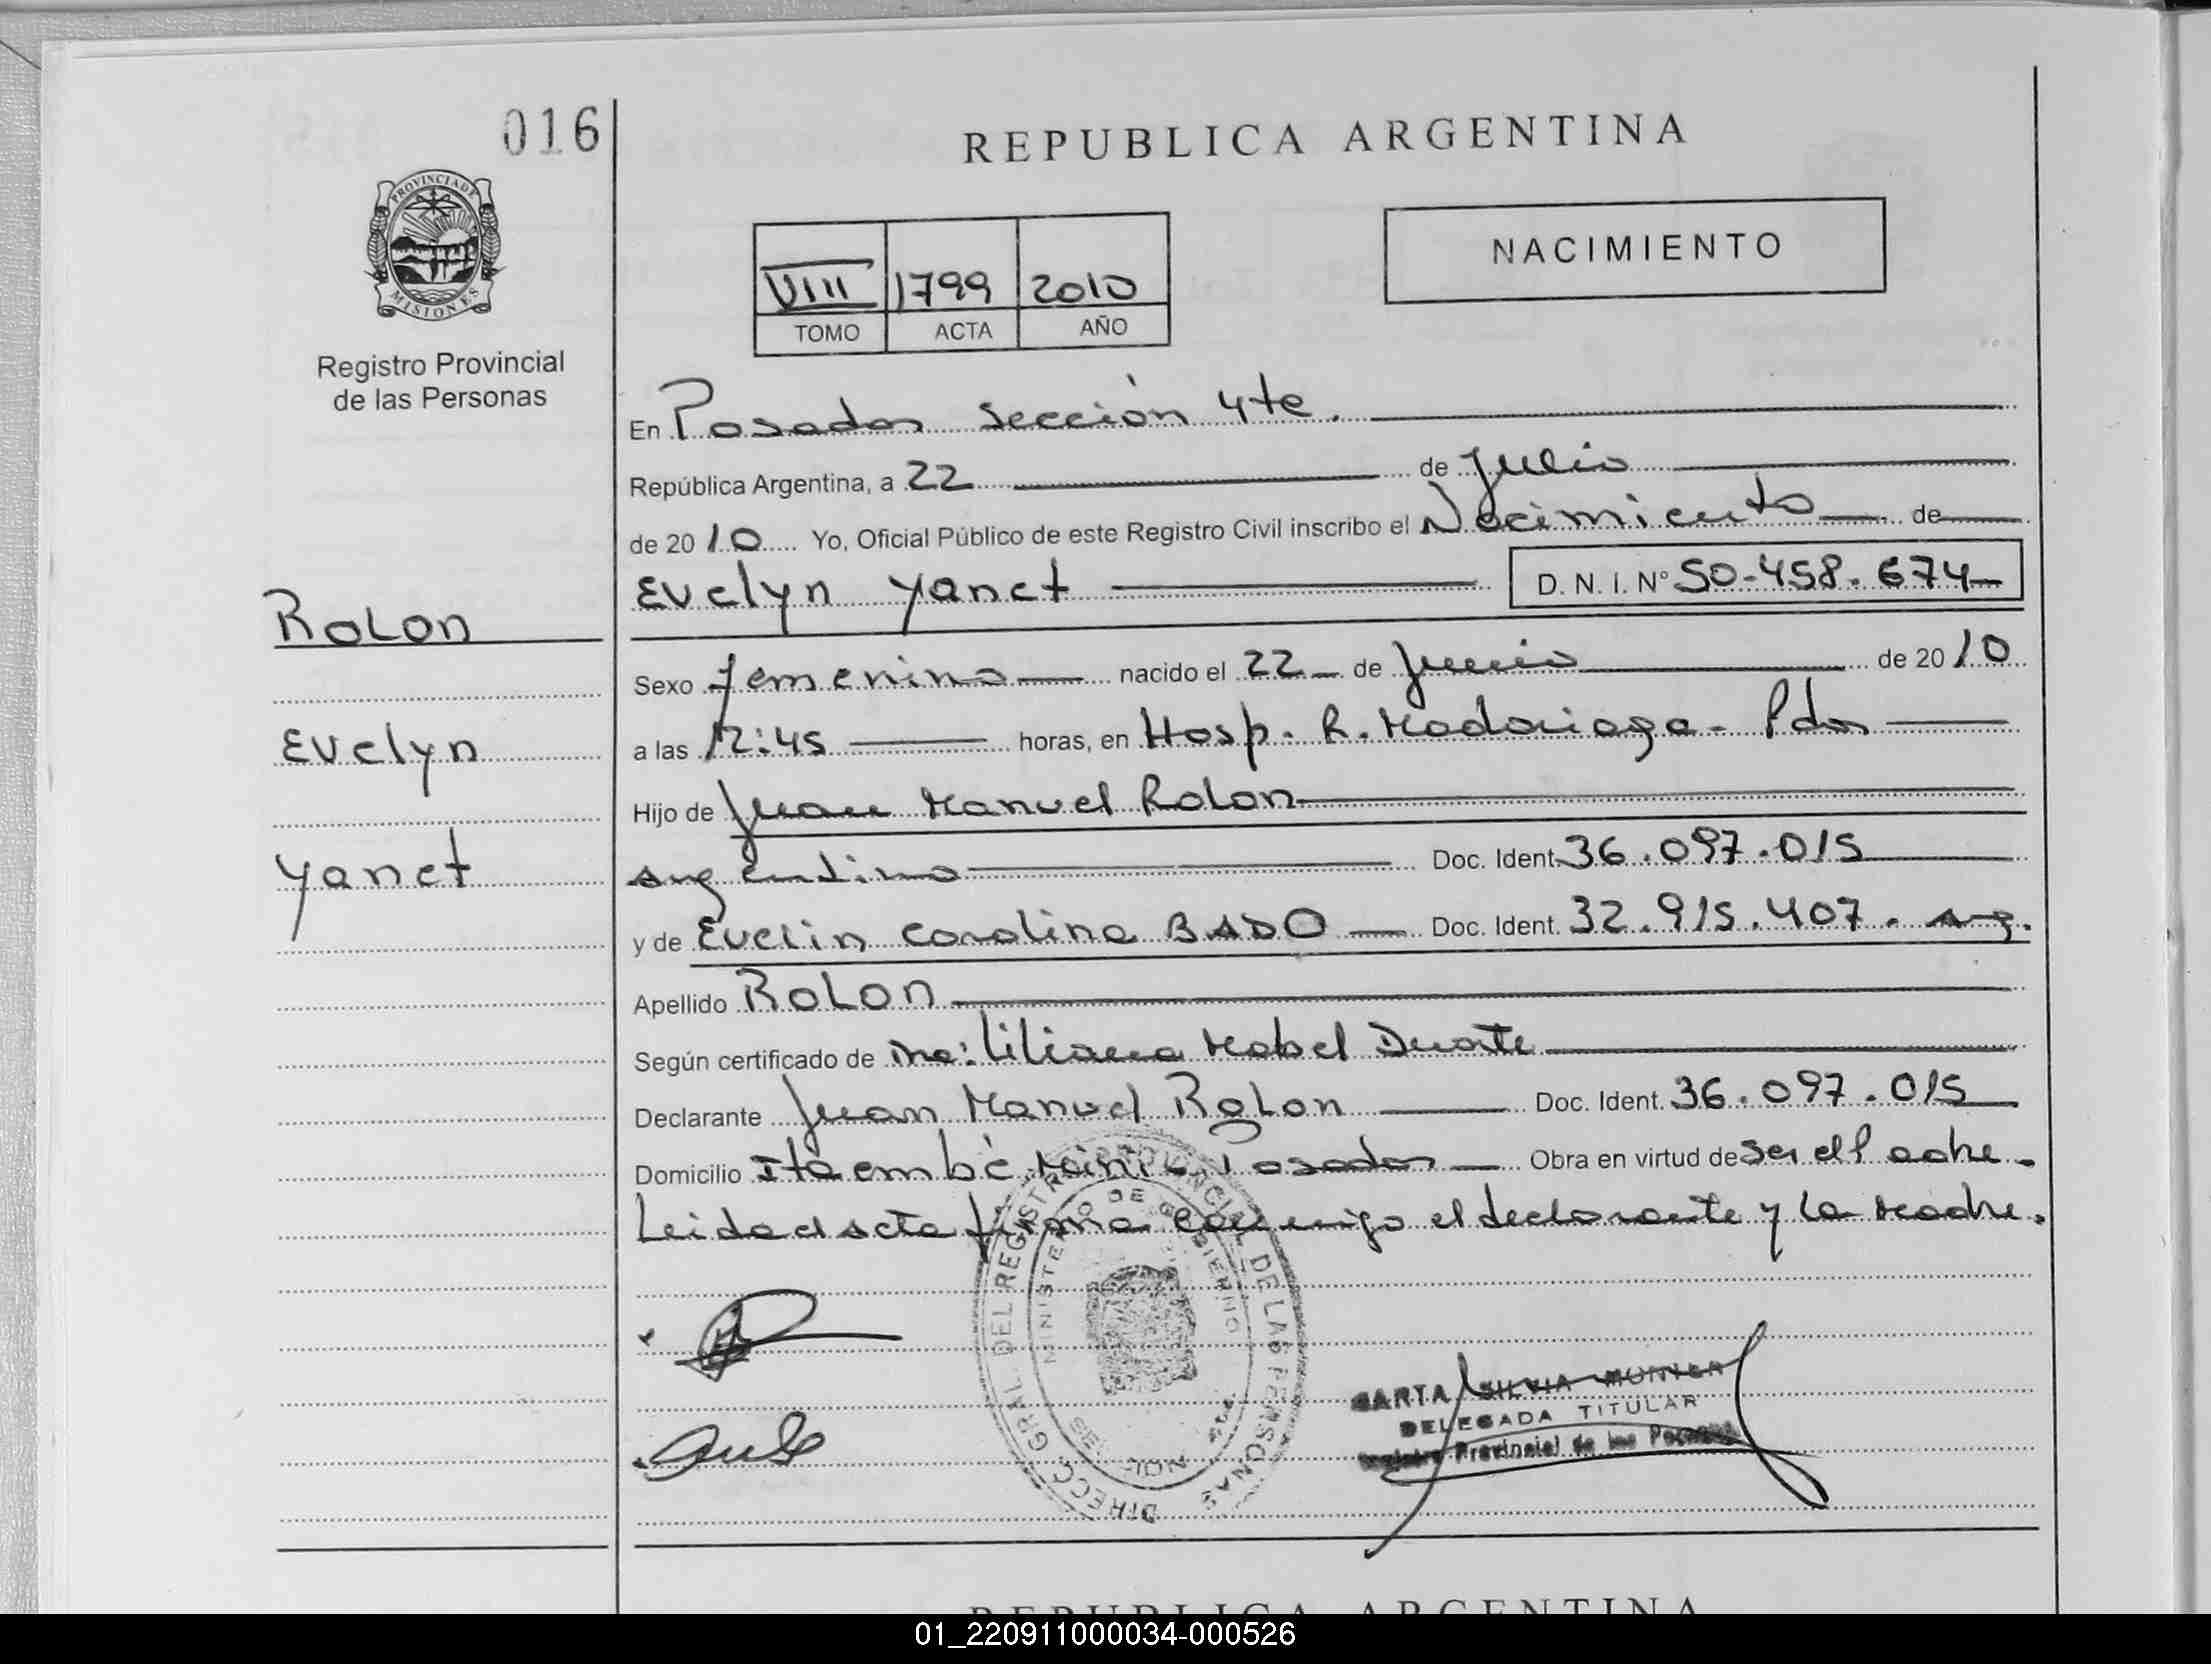 016
REPUBLICA ARGENTINA
PROVINCIA DE
MISIONES
Registro Provincial
de las Personas
NACIMIENTO
VIII 1799 2010
TOMO ACTA AÑO
En Posadas Sección 4te.
República Argentina, a 22 de Julio
de 2010 Yo, Oficial Público de este Registro Civil inscribo el Nacimiento de
Evelyn Yanet D. N. I. N° 50.458.674
Rolon
Evelyn
Yanet
Sexo femenino nacido el 22 de Junio de 2010
a las 12:45 horas, en Hosp. R. Madariaga - Pdas
Hijo de Juan Manuel Rolon
argentino Doc. Ident. 36.097.015
y de Evelin Carolina BADO Doc. Ident. 32.915.407. arg.
Apellido Rolon
Según certificado de Liliana Mabel Duarte
Declarante Juan Manuel Rolon Doc. Ident. 36.097.015
Domicilio Itaembé Mini Posadas Obra en virtud de ser el Padre.
Leida el acta firma conmigo el declarante y la Madre.
DIREC. GRAL. DEL REGISTRO PROVINCIAL DE LAS PERSONAS
MINISTERIO DE GOBIERNO
SILVIA
DELEGADA TITULAR
Registro Provincial de las Personas
REPUBLICA ARGENTINA
01_220911000034-000526